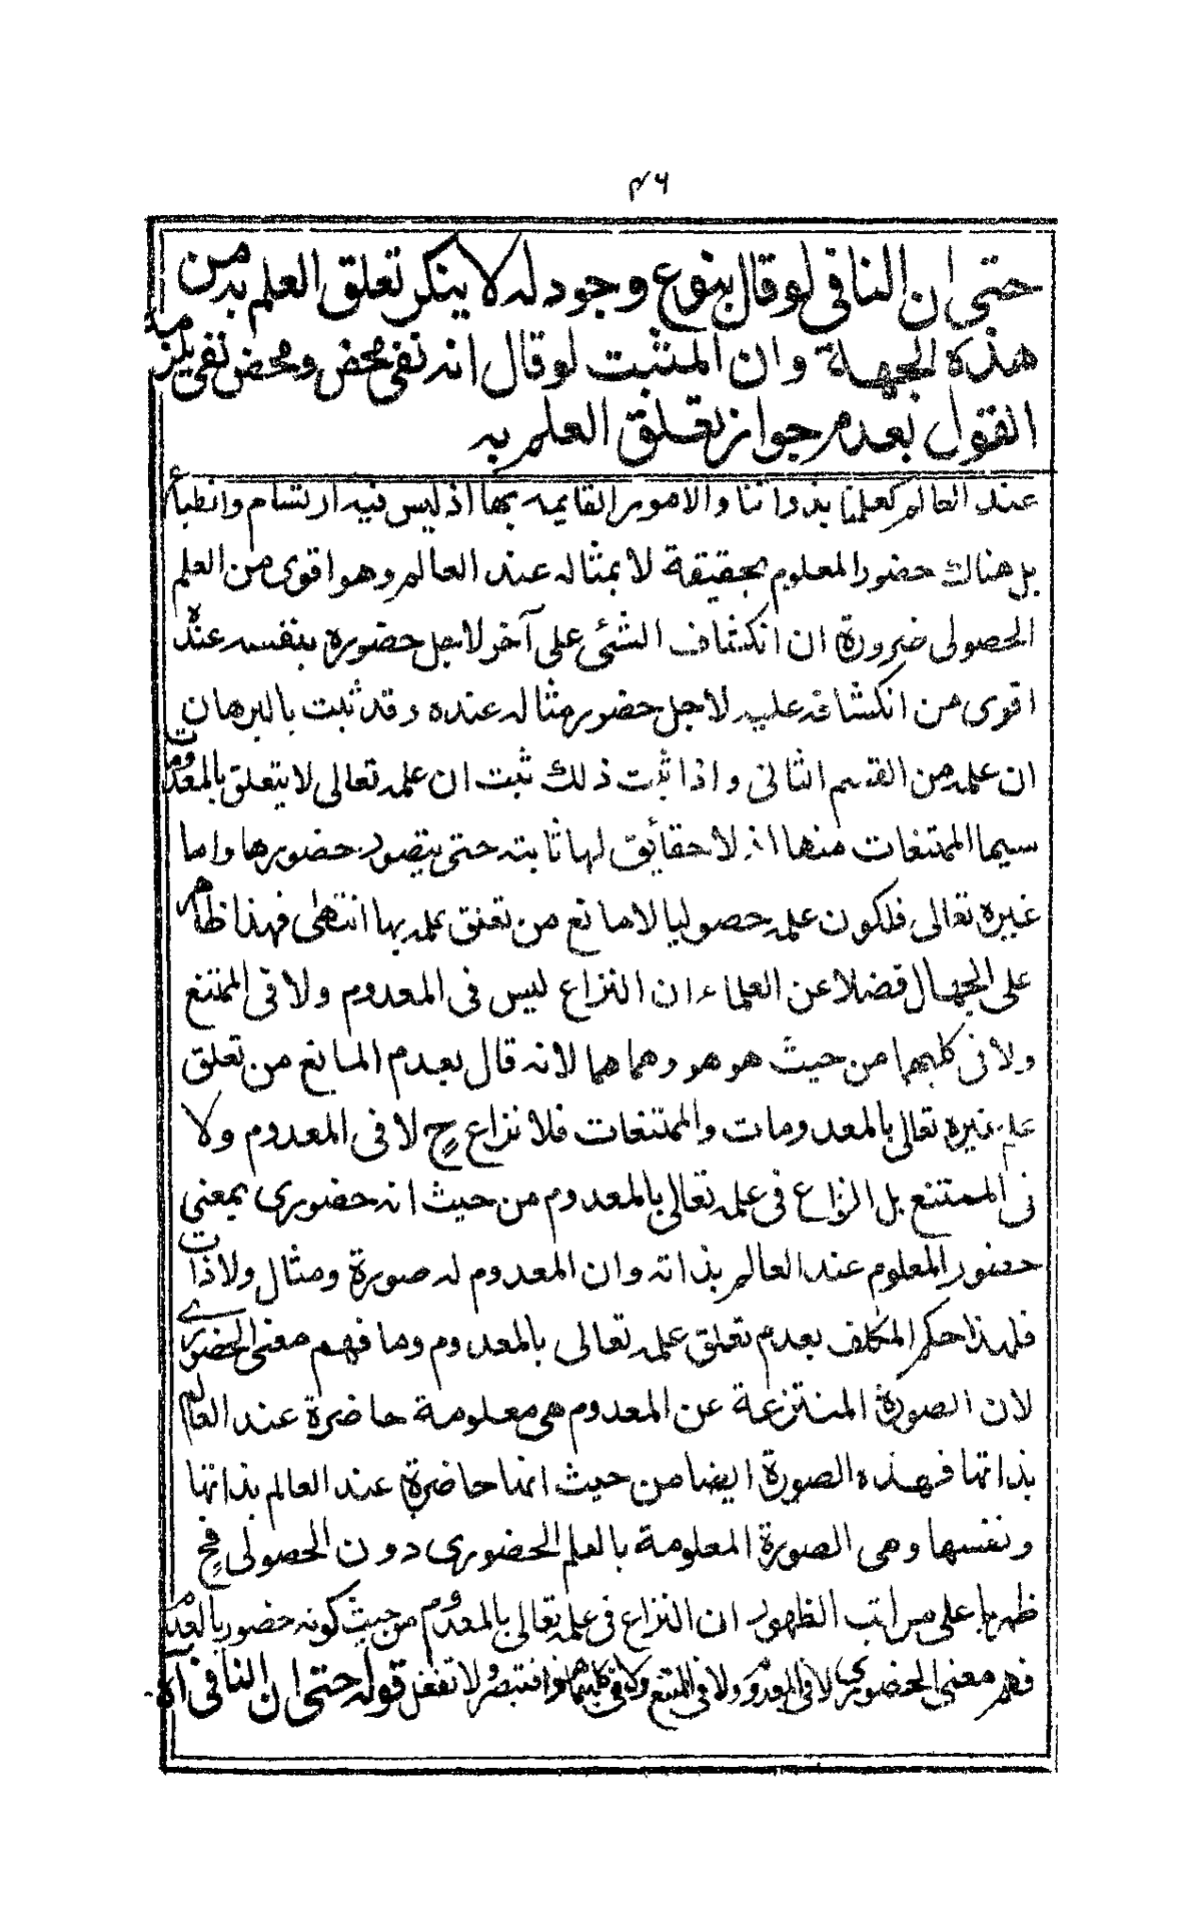 ٤٦
حتى ان النافى لو قال بنوع وجود له لا ينكر تعلق العلم به من
هذه الجهة وان المثبت لو قال انه نفى محض ومحض نفى يلزمه
القول بعدم جواز تعلق العلم به
عند العالم كعلمنا بذواتنا والامور القايمه بها اذ ليس فيه ارتسام وانطباع
بل هناك حضور المعلوم بحقيقة لا بمثاله عند العالم وهو اقوى من العلم
الحصولى ضرورة ان انكشاف الشئى على آخر لاجل حضوره بنفسه عنده
اقوى من انكشافه عليه لاجل حضور مثاله عنده وقد ثبت بالبرهان
ان علمه من القسم الثانى واذا ثبت ذلك ثبت ان علمه تعالى لا يتعلق بالمعدومات
سيما الممتنعات منها اذ لا حقائق لها ثابته حتى يتصود حضورها واما
غيره تعالى فلكون علمه حصوليا لا مانع من تعلق علمه بها انتهى فهذا ظاهر
على الجهال فضلا عن العلماء ان النزاع ليس فى المعدوم ولا فى الممتنع
ولا فى كليهما من حيث هو هو وهما هما لانه قال بعدم المانع من تعلق
علم غيره تعالى بالمعدومات والممتنعات فلا نزاع ح لا فى المعدوم ولا
فى الممتنع بل النزاع فى علمه تعالى بالمعدوم من حيث انه حضورى بمعنى
حضور المعلوم عند العالم بذاته وان المعدوم له صورة ومثال ولا ذات
فلهذا حكم المكلف بعدم تعلق علمه تعالى بالمعدوم وما فهم معنى الحضورے
لان الصورة المنتزعة عن المعدوم هى معلومة حاضرة عند العالم
بذاتها فهذه الصورة ايضا من حيث انها حاضرة عند العالم بذاتها
ونفسها وهى الصورة المعلومة بالعلم الحضورى دون الحصولى فح
ظهر ما على مراتب الظهور ان النزاع فى علمه تعالى بالمعدوم من حيث كونه حضوريا لعدم
فهم معنى الحضورى لا فى المعدوم ولا فى الممتنع ولا فى كليهما هذا فتبصر ولا تغفل قوله حتى ان النافى آه